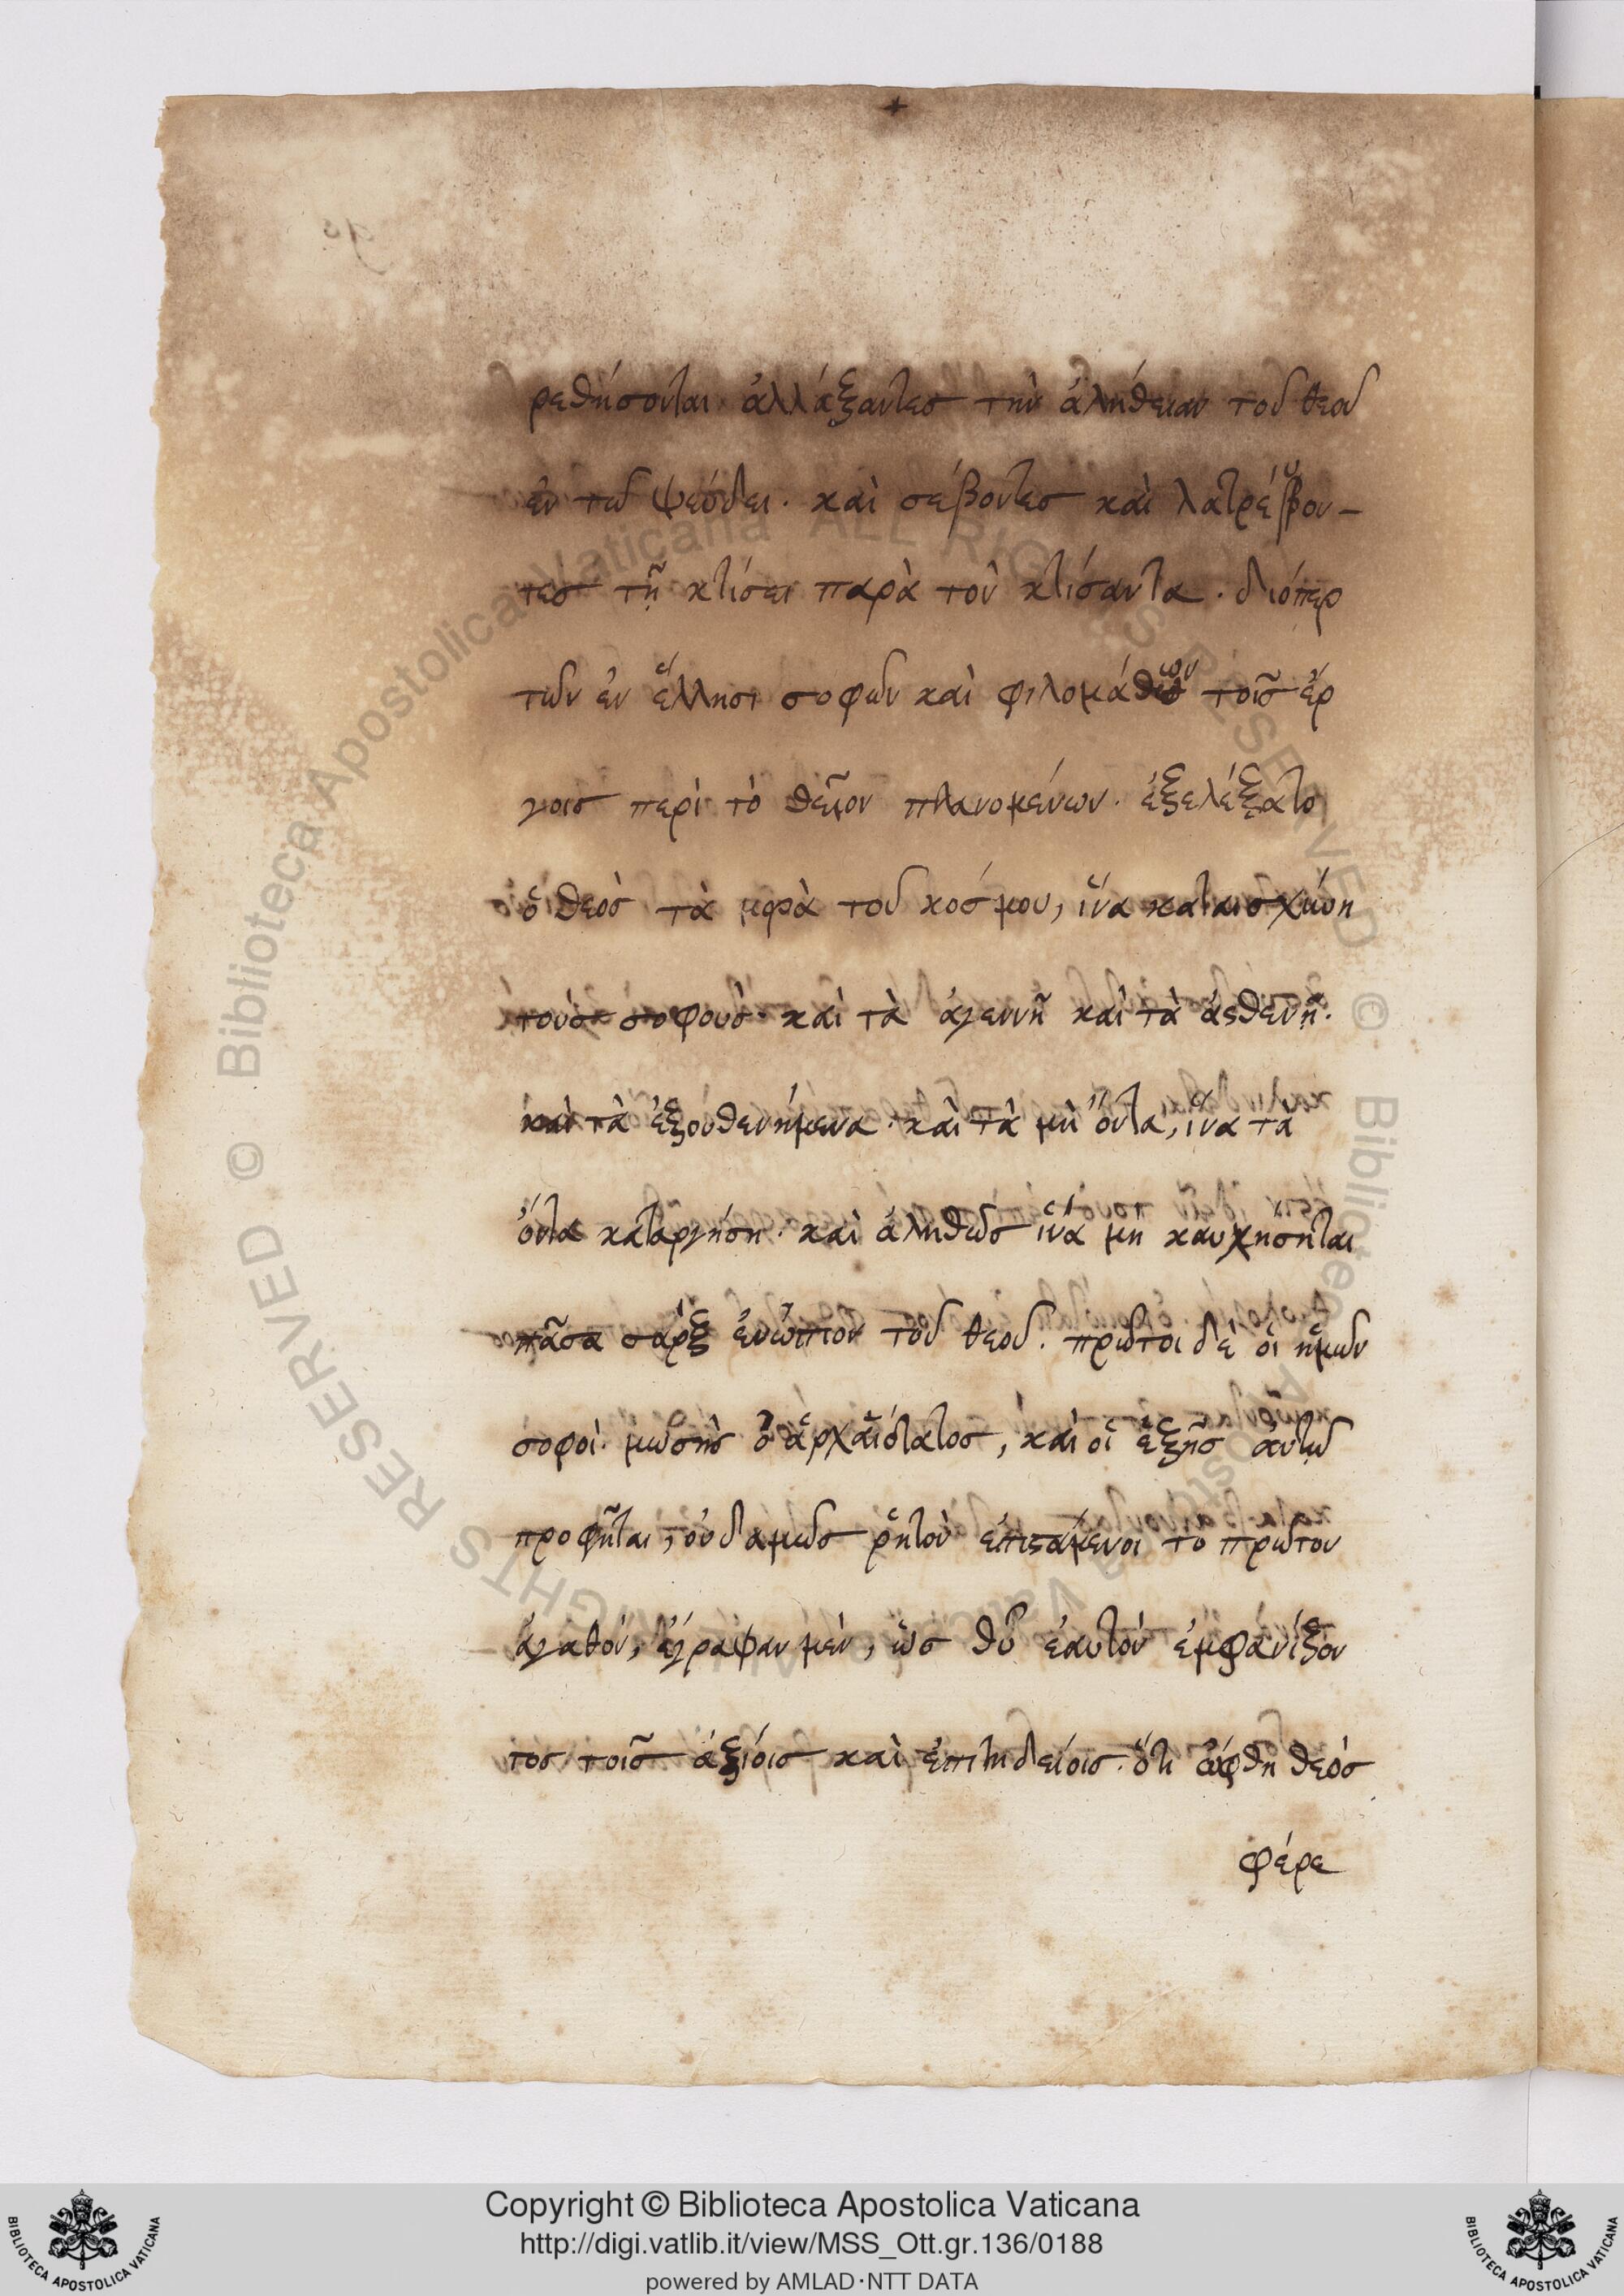 ρεθήσονται· ἀλλάξαντες τὴν ἀλήθειαν τοῦ θεοῦ
ἐν τῶ ψεύδει· καὶ σέβοντες καὶ λατρέβου-
τες τῆ κτίσει παρὰ τὸν κτίσαντα· διόπερ
τῶν ἐν ἕλλησι σοφῶν καὶ φιλομάθων τοῖς ἔρ
γοις περὶ τὸ θεῖον πλανομένων· ἐξελέξατο
ὁ θεὸς τὰ μωρὰ τοῦ κόσμου, ἵνα καταισχύνη
τοὺς σοφοὺς· καὶ τὰ ἀγεννῆ καὶ τὰ ἀσθενῆ·
καὶ τὰ ἐξουθενήμενα· καὶ τὰ μὴ ὄντα, ἵνα τὰ
ὄντα καταργήση· καὶ ἀληθῶς ἵνα μὴ καυχησηται
πᾶσα σὰρξ ἐνώπιον τοῦ θεοῦ· πρῶτοι δὲ οἱ ἡμῶν
σοφοὶ· μωσῆς ὁ ἀρχαιότατος, καὶ οἱ ἑξῆς ἀυτῶ
προφῆται, ὀυδαμῶς ῥητὸν ἐπιστάμενοι τὸ πρῶτον
ἀγαθόν, ἔγραψαν μὲν, ὡς θῦ ἑαυτὸν ἐμφανίζον
τος τοῖς ἀξίοις καὶ ἐπιτηδείοις· ὅτι ὤφθη θεὸς
φέρε
Copyright © Biblioteca Apostolica Vaticana
http://digi.vatlib.it/view/MSS_Ott.gr.136/0188
powered by AMLAD·NTT DATA